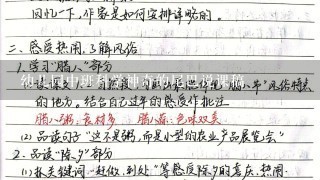 回忆一下，作家是如何安排详略的。
二、感受热闹，了解风俗
1.学习"腊八"部分
的地方。结合自己过年的感受作批注
腊八粥：食材多 腊八蒜：色味双美
(2)品读句子"这不是粥，而是小型的农业产品展览会"
2.品读"除夕"部分
(1)抓关键词"赶做、到处"等感受除夕的喜庆、热闹